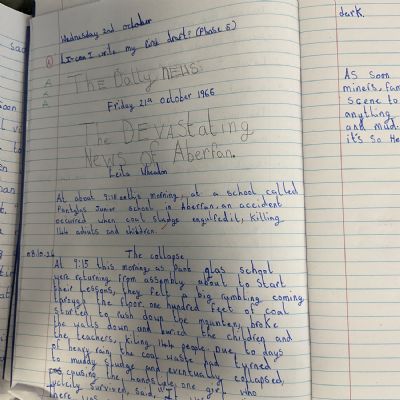 Wednesday 2nd October
L.I: can I write my first draft? (Phase 5)
The Daily News:
Friday 21st october 1966
The DEVAStating
News of Aberfan.
Leila
At about 9:15 this morning, at a school called
Pantglas Junior school in Aberfan, an accident
occurred when coal sludge engulfed it, killing
144 adults and children.
The collapse
At 9:15 this morning, as pant glas school
were returning from assembly about to start
their lessons, they felt a big rumbling coming
through the floor. one hundred feet of coal
started to rush down the mounten, broke
the walls down and buried the children and
the teachers, killing 144 people. Due to days
of heavy rain, the coal waste had turned
to muddy sludge and eventually collapsed,
causing the landslide. one girl who
survived, said, "I
there was
dark.
As Soon
miners, fam
scene to
anything
and mud.
it's So He